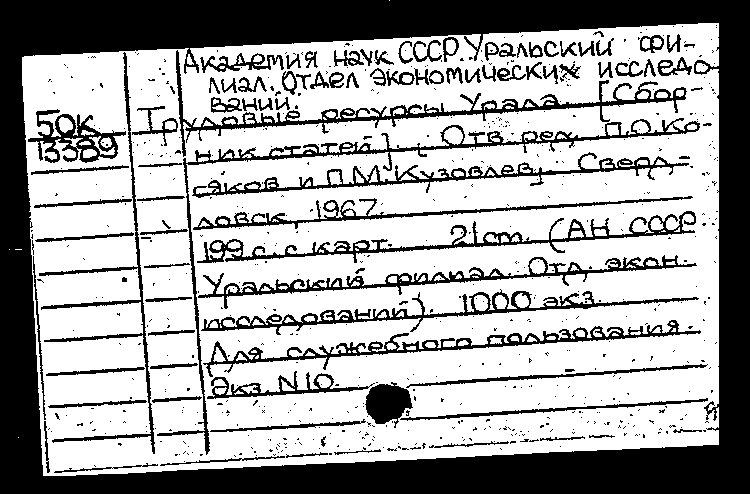 Академия наук СССР. Уральский фи-
лиал. Отдел экономических исследо-
ваний.
50К Трудовые ресурсы Урала. [Сбор-
13389
ник статей]. Отв. ред. П.О.Ко-
сяков и П.М.Кузовлев. Сверд-
ловск, 1967.
199 с. с карт. 21 cm. (АН СССР.
Уральский филиал. Отд. экон.
исследований). 1000 экз.
Для служебного пользования.
Экз. N10.